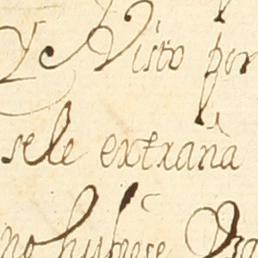 Y Visto por
sele extraña
no hubiese